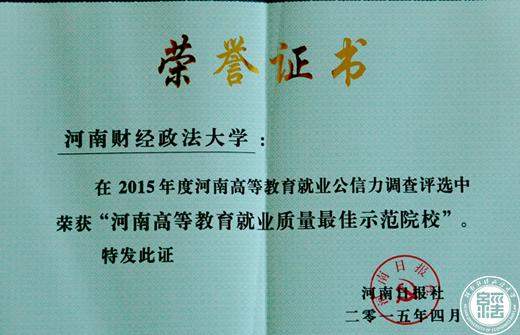 荣誉证书
河南财经政法大学：
在2015年度河南高等教育就业公信力调查评选中
荣获“河南高等教育就业质量最佳示范院校”。
特发此证
河南日报社
河南日报社
二〇一五年四月